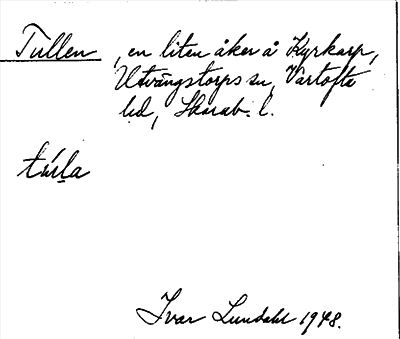 Tullen, en liten åker å Kyrkarp,
Utvängstorps sn, Vartofta
hd, Skarab. l.
Ivar Lundahl 1948.